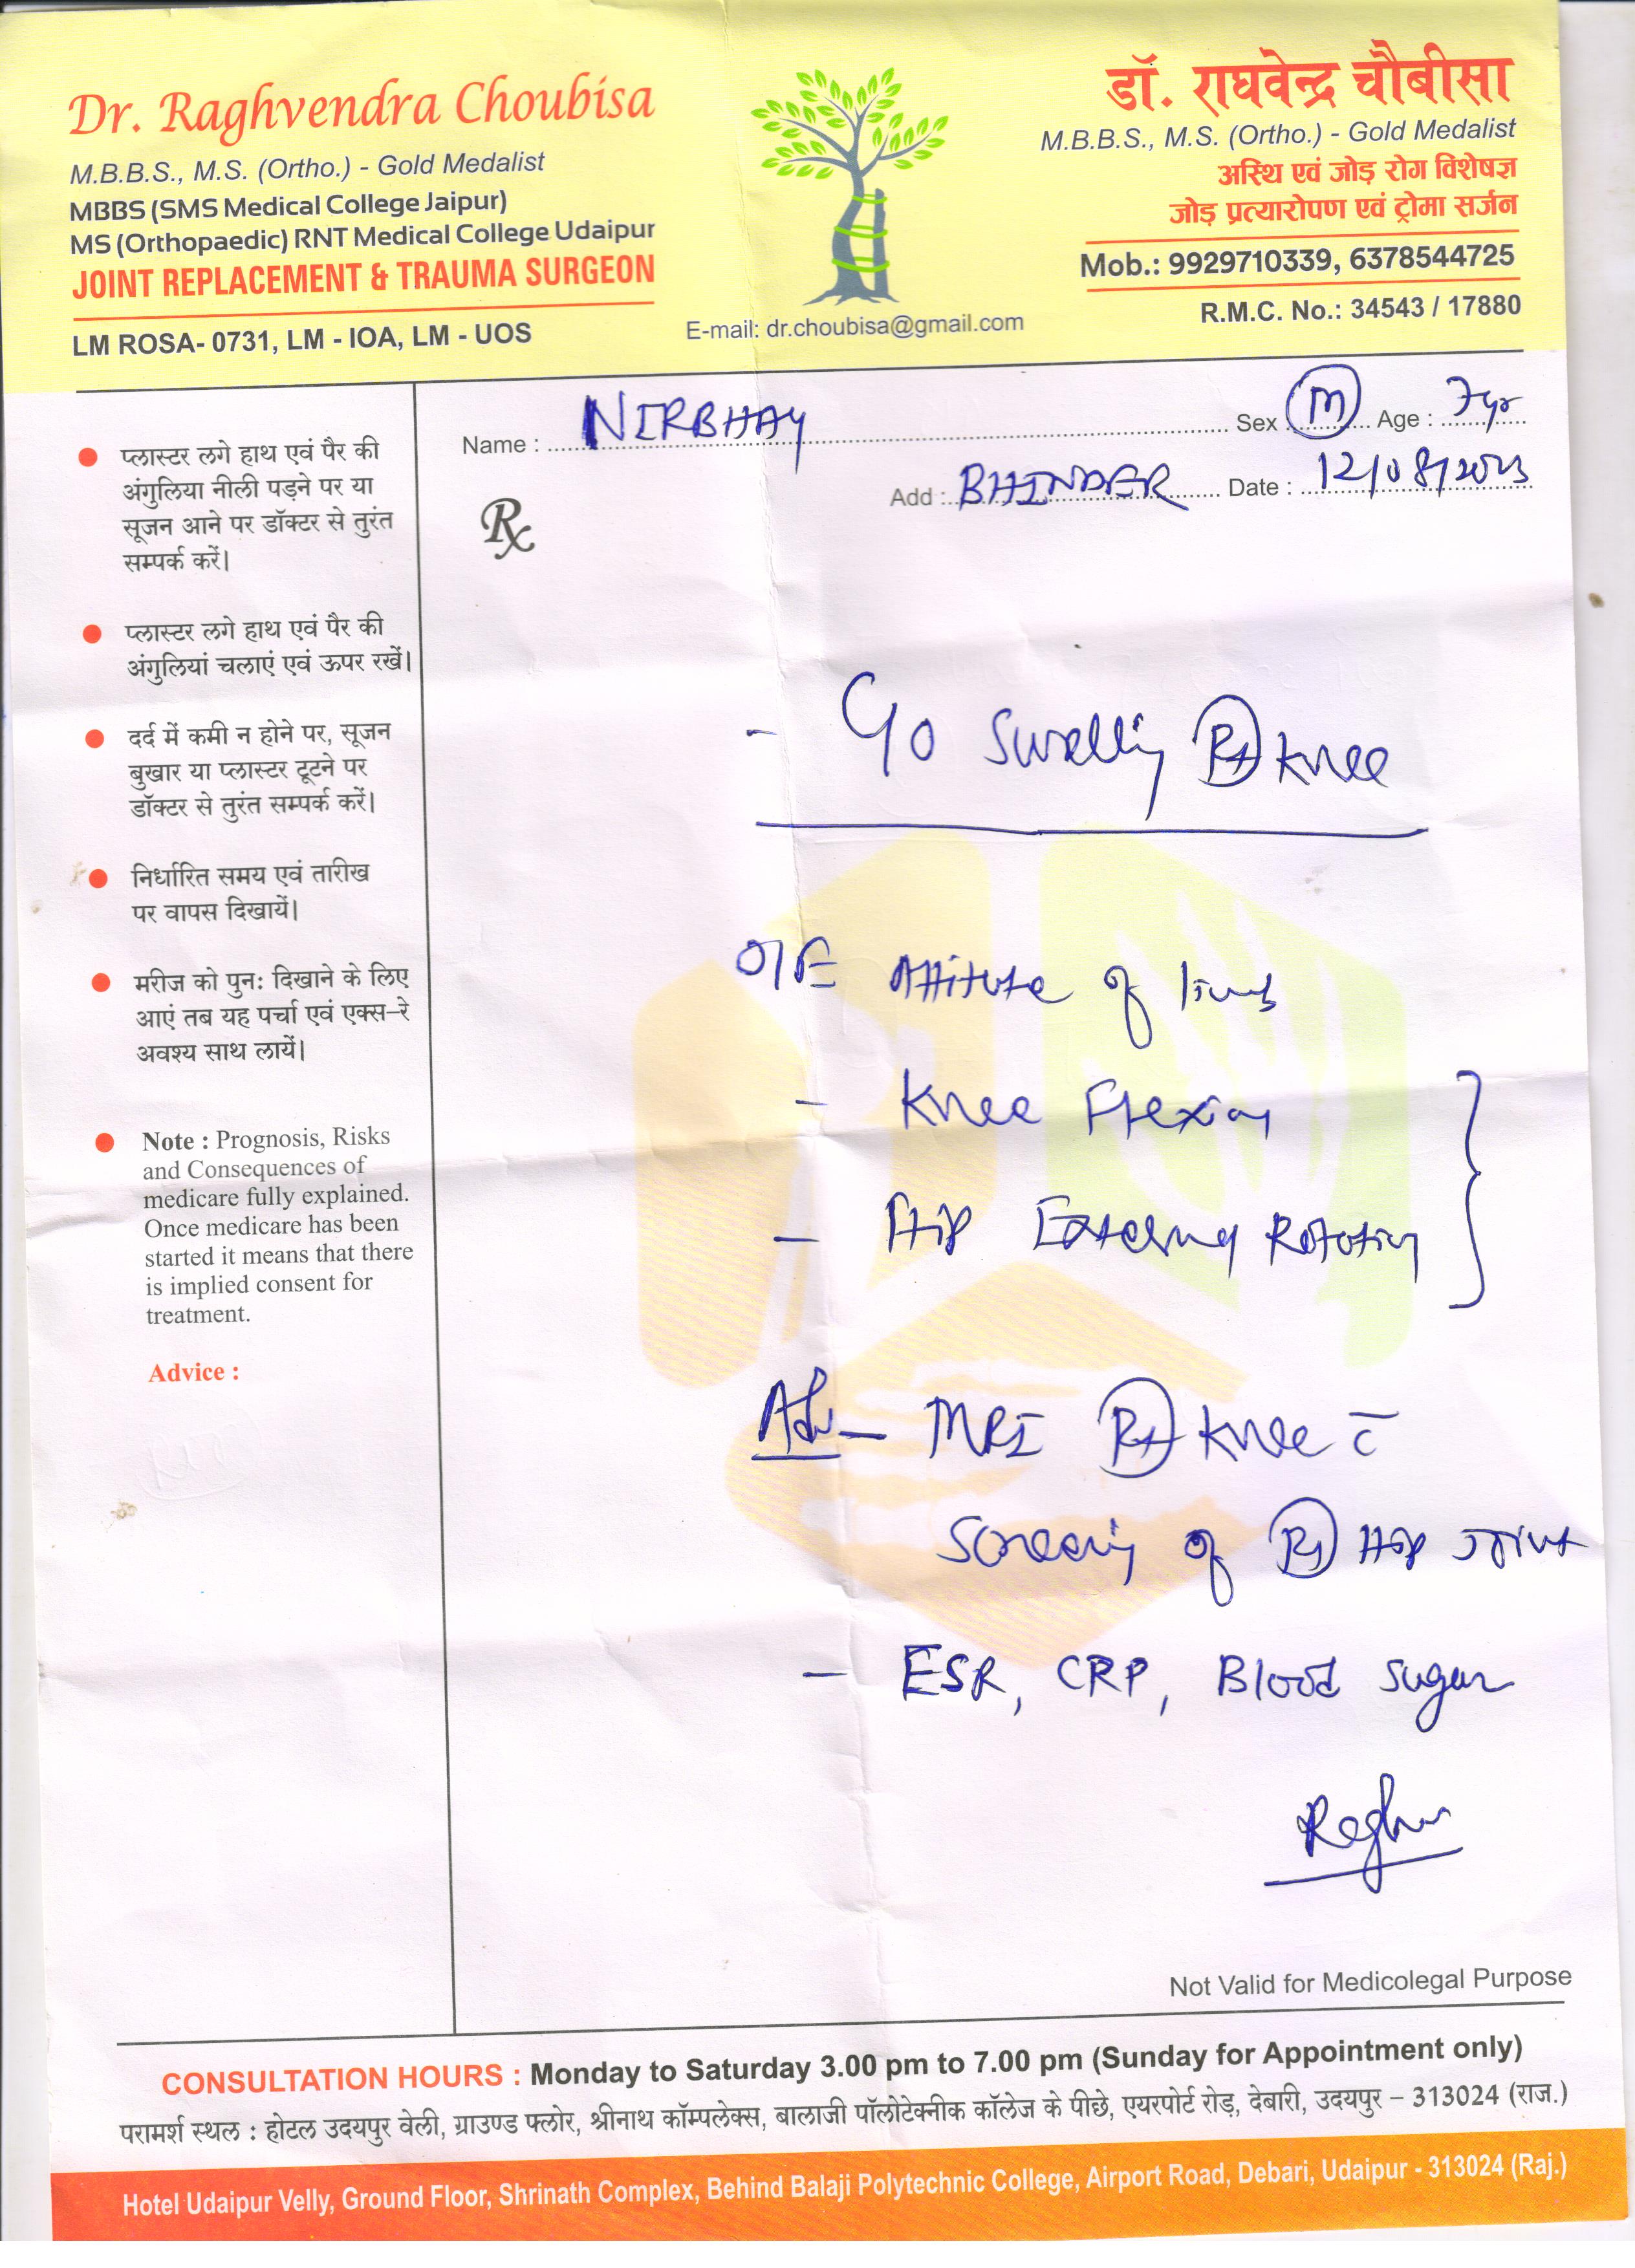 Dr. Raghvendra Choubisa
M.B.B.S., M.S. (Ortho.) - Gold Medalist
MBBS (SMS Medical College Jaipur)
MS (Orthopaedic) RNT Medical College Udaipur
JOINT REPLACEMENT & TRAUMA SURGEON
LM ROSA- 0731, LM - IOA, LM - UOS
E-mail: dr.choubisa@gmail.com
डॉ. राघवेन्द्र चौबीसा
M.B.B.S., M.S. (Ortho.) - Gold Medalist
अस्थि एवं जोड़ रोग विशेषज्ञ
जोड़ प्रत्यारोपण एवं ट्रोमा सर्जन
Mob.: 9929710339, 6378544725
R.M.C. No.: 34543 / 17880
Name : NIRBHAY Sex M Age : 7yr
Add : BHINDER Date : 12/08/2023
Rx
प्लास्टर लगे हाथ एवं पैर की
अंगुलिया नीली पड़ने पर या
सूजन आने पर डॉक्टर से तुरंत
सम्पर्क करें।
प्लास्टर लगे हाथ एवं पैर की
अंगुलियां चलाएं एवं ऊपर रखें।
दर्द में कमी न होने पर, सूजन
बुखार या प्लास्टर टूटने पर
डॉक्टर से तुरंत सम्पर्क करें।
निर्धारित समय एवं तारीख
पर वापस दिखायें।
मरीज को पुनः दिखाने के लिए
आएं तब यह पर्चा एवं एक्स-रे
अवश्य साथ लायें।
Note : Prognosis, Risks
and Consequences of
medicare fully explained.
Once medicare has been
started it means that there
is implied consent for
treatment.
Advice :
- C/o Swelling Rt knee
O/E Attitute of limb
- Knee Flexion
- Hip External Rotation
Adv - MRI Rt Knee c̄
Screening of Rt Hip Joint
- ESR, CRP, Blood sugar
Raghu
Not Valid for Medicolegal Purpose
CONSULTATION HOURS : Monday to Saturday 3.00 pm to 7.00 pm (Sunday for Appointment only)
परामर्श स्थल : होटल उदयपुर वेली, ग्राउण्ड फ्लोर, श्रीनाथ कॉम्पलेक्स, बालाजी पॉलोटेक्नीक कॉलेज के पीछे, एयरपोर्ट रोड़, देबारी, उदयपुर – 313024 (राज.)
Hotel Udaipur Velly, Ground Floor, Shrinath Complex, Behind Balaji Polytechnic College, Airport Road, Debari, Udaipur - 313024 (Raj.)